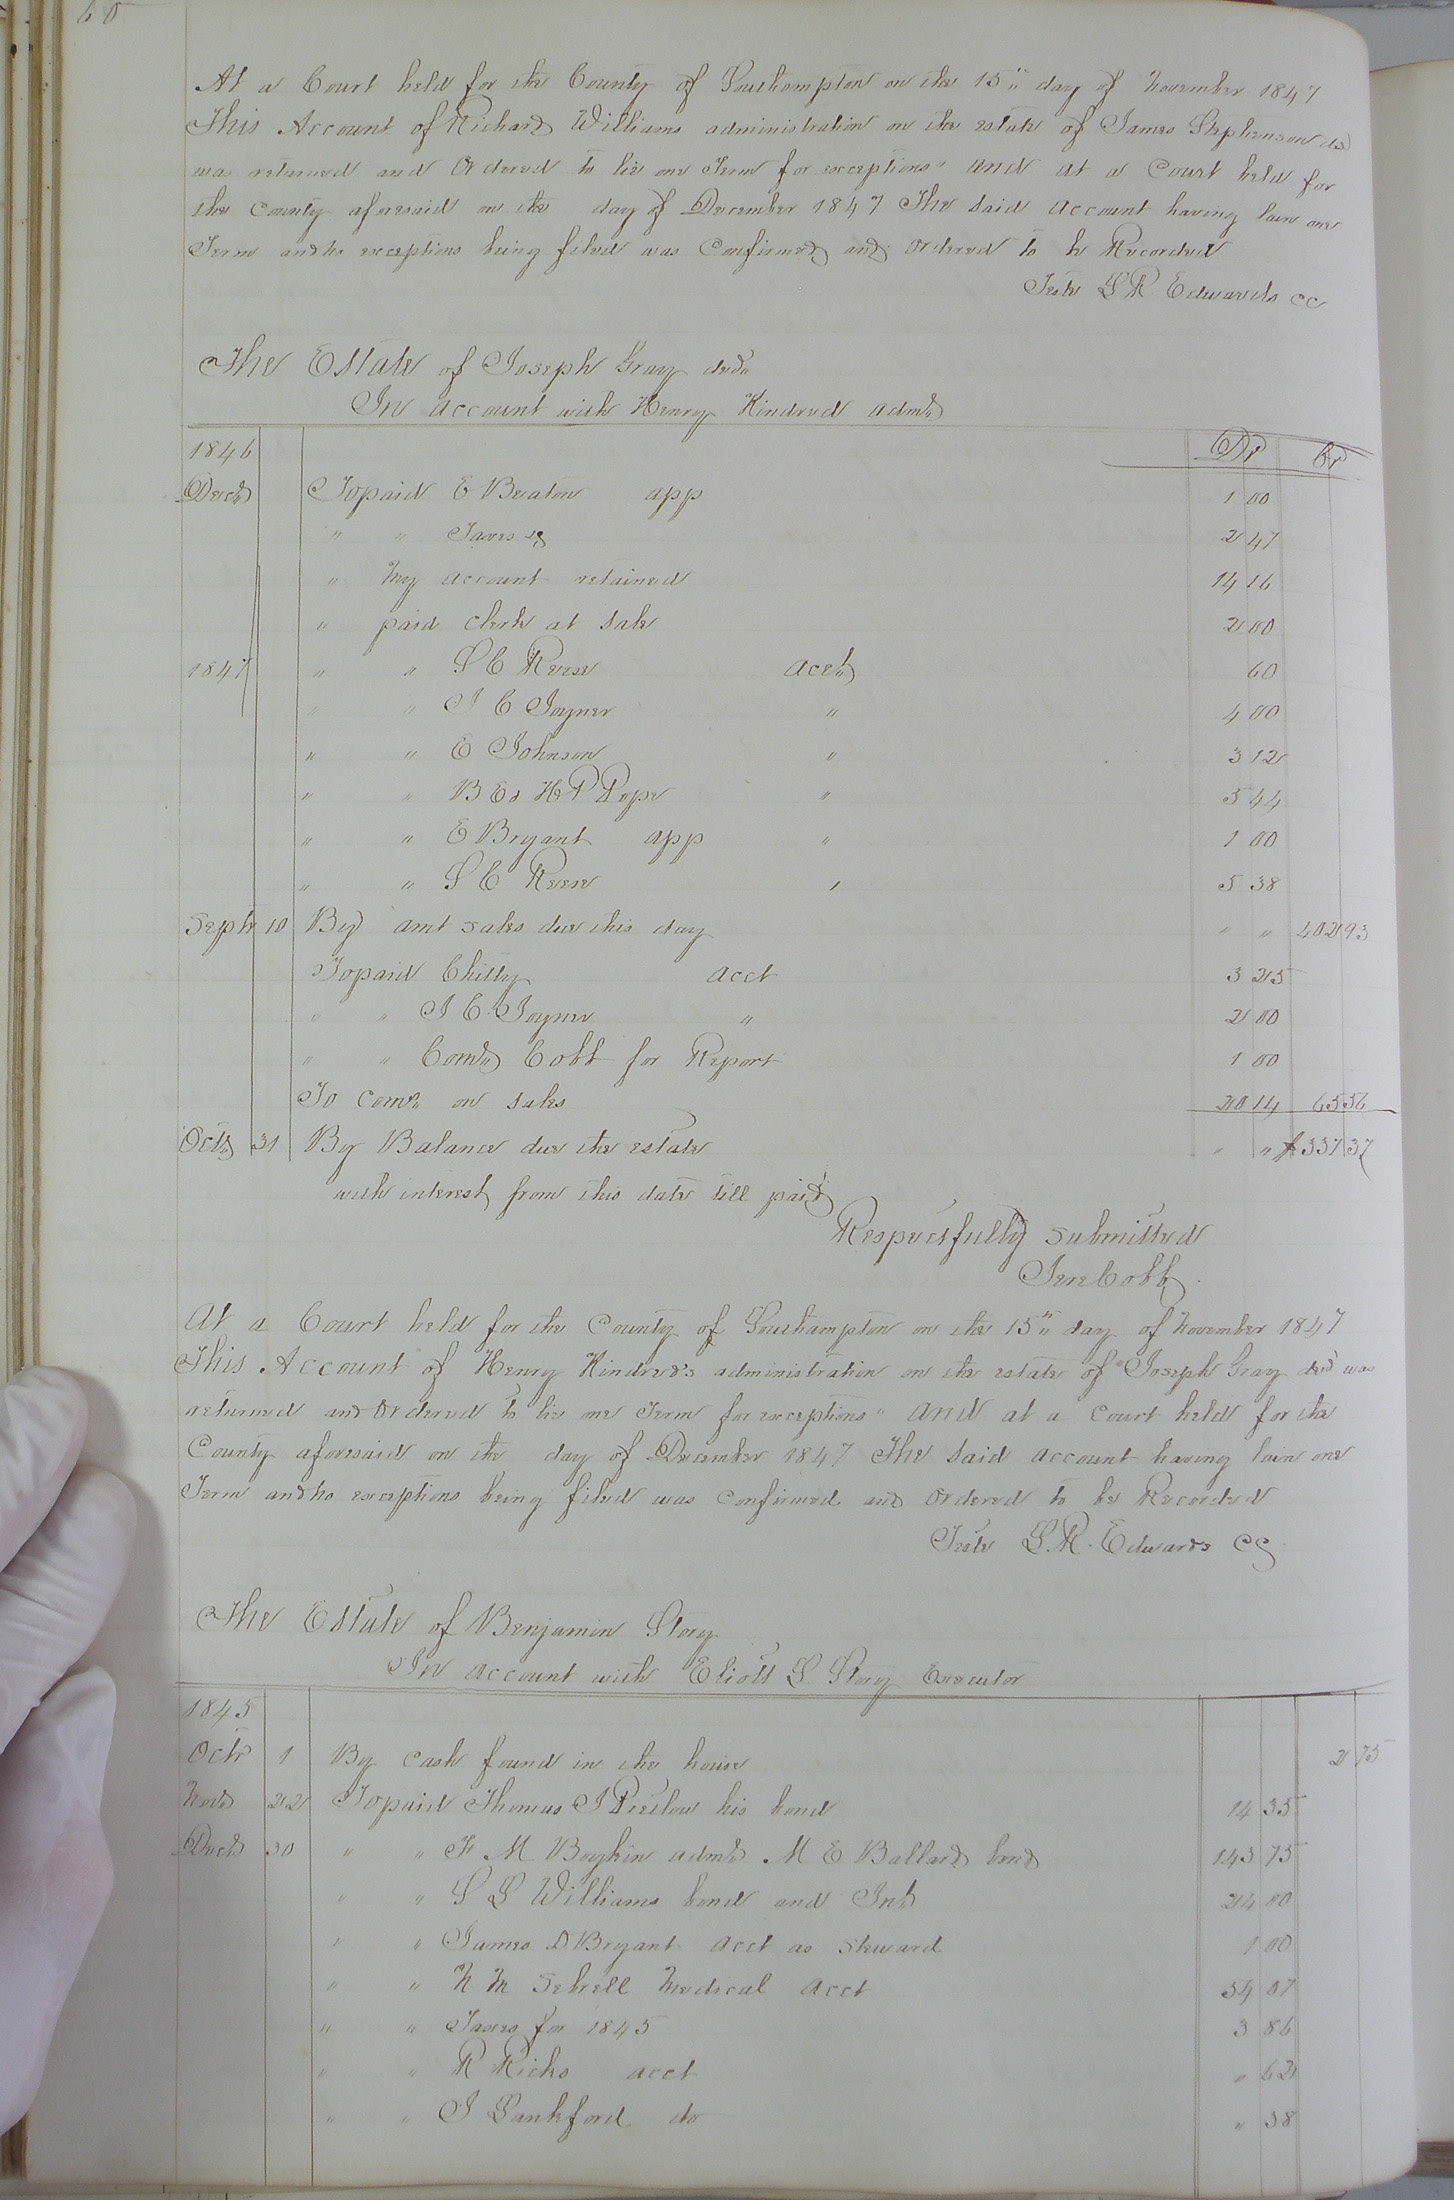 60
At a Court held for the County of Southampton on the 15" day of November 1847
This Account of Richard Williams administration on the estate of James Stephenson dcd
was returned and Ordered to lie one Term for exceptions" and at a Court held for
the County aforesaid on the day of December 1847 The said account having lain one
Term and no exceptions being filed was Confirmed and ordered to be Recorded
Teste L R Edwards cc
The Estate of Joseph Gray decd
In account with Henry Kindred admr
1846 Dr Cr
Decr To paid E Beaton app 1 00
" " Taxes &c 2 47
" My account retained 14 16
" paid clerk at sale 2 00
1847 " " S C Reese acct 60
" " J C Joyner " 4 00
" " E Johnson " 3 12
" " B E & H P Pope " 5 44
" " E Bryant app " 1 00
" " S C Reese " 5 38
Septr 10 By amt sales due this day " " 402 93
To paid Chitty acct 3 25
" " J C Joyner " 2 00
" " Comr Cobb for Report 1 00
To Comn on sales 20 14 65 56
Octr 31 By Balance due the estate " " $337 37
with interest from this date till paid
Respectfully submitted
Jere Cobb
At a Court held for the County of Southampton on the 15" day of November 1847
This Account of Henry Kindred's administration on the estate of Joseph Gray decd was
returned and Ordered to lie one Term for exceptions" and at a Court held for the
County aforesaid on the day of December 1847 The said account having lain one
Term and no exceptions being filed was confirmed and Ordered to be Recorded
Teste L. R. Edwards CC
The Estate of Benjamin Story
In account with Eliott L Story Executor
1845
Octr 1 By cash found in the house 2 75
Novr 22 To paid Thomas J Pretlow his bond 14 35
Decr 30 " " F M Boykin admr M E Ballard bond 143 75
" " S L Williams bond and Int 24 00
" " James D Bryant acct as steward 1 00
" " N M Sebrell Medical acct 54 07
" " Taxes for 1845 3 86
" " R Ricks acct " 62
" " J Lankford do " 38